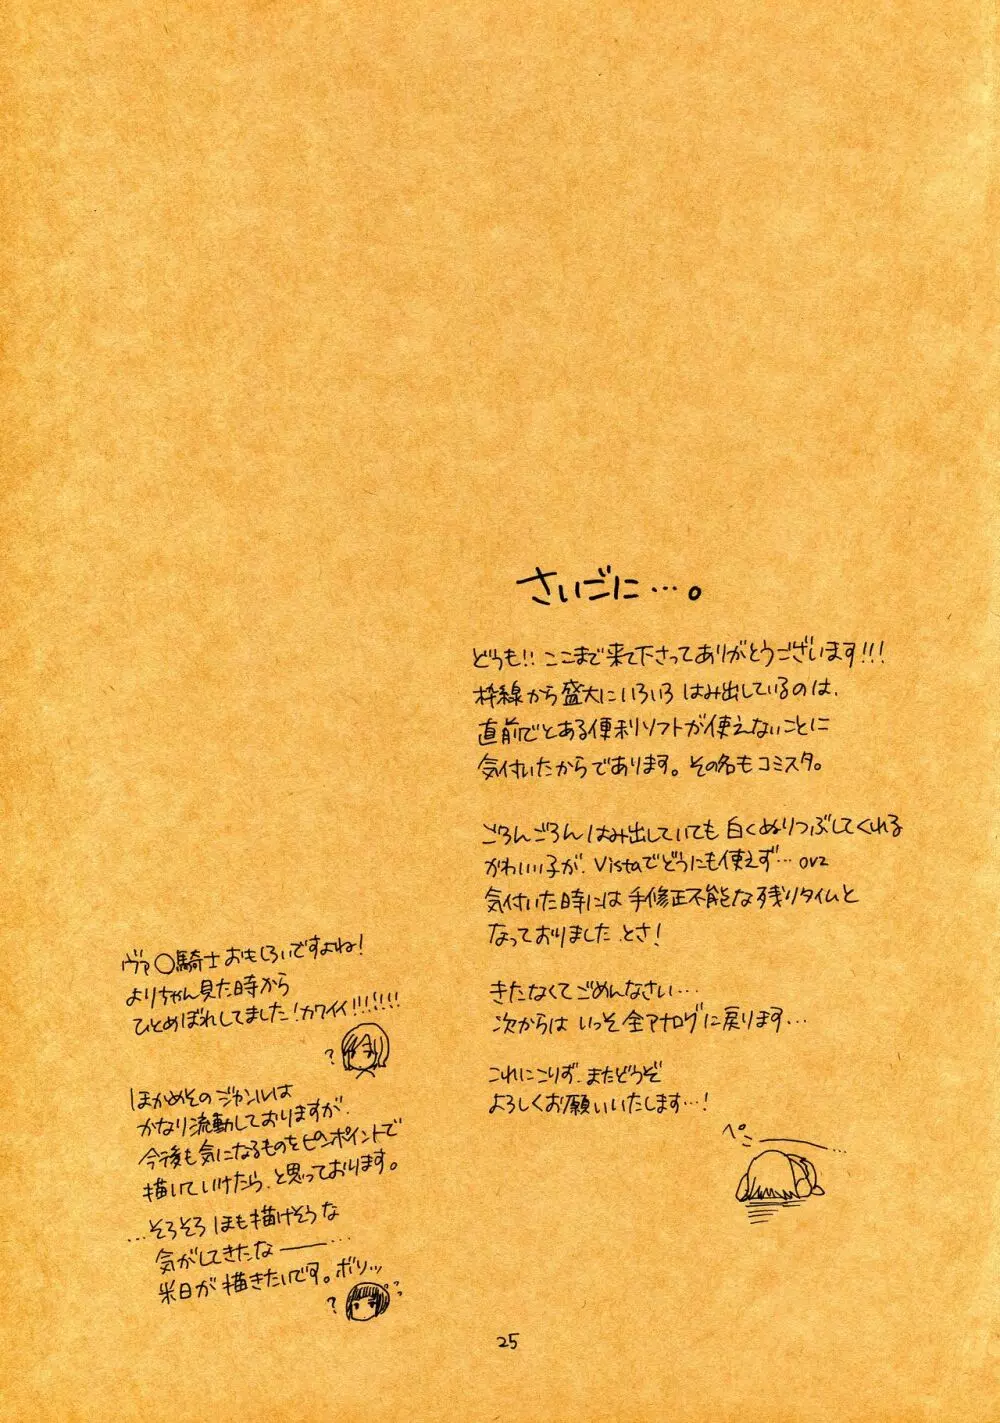 さいごに…。
どうも!! ここまで来て下さってありがとうございます!!!
枠線から盛大にいろいろ はみ出しているのは、
直前でとある便利ソフトが使えないことに
気付いたからであります。その名もコミスタ。
ごろんごろん はみ出していても 白くぬりつぶしてくれる
かわいい子が、Vistaでどうにも使えず… orz
気付いた時には 手修正不能な残りタイムと
なっておりました、とさ!
きたなくてごめんなさい…
次からは いっそ全アナログに戻ります…
これにこりず、またどうぞ
よろしくお願いいたします…!
ペこ
ヴァ○騎士おもしろいですよね!
よりちゃん見た時から
ひとめぼれしてました!カワイイ!!!!!!
?
ほかめその ジャンルは
かなり流動しておりますが、
今後も気になるものをピンポイントで
描いていけたら、と思っております。
…そろそろ ほも描けそうな
気がしてきたなー…
米日が描きたいです。ボソッ
?
25